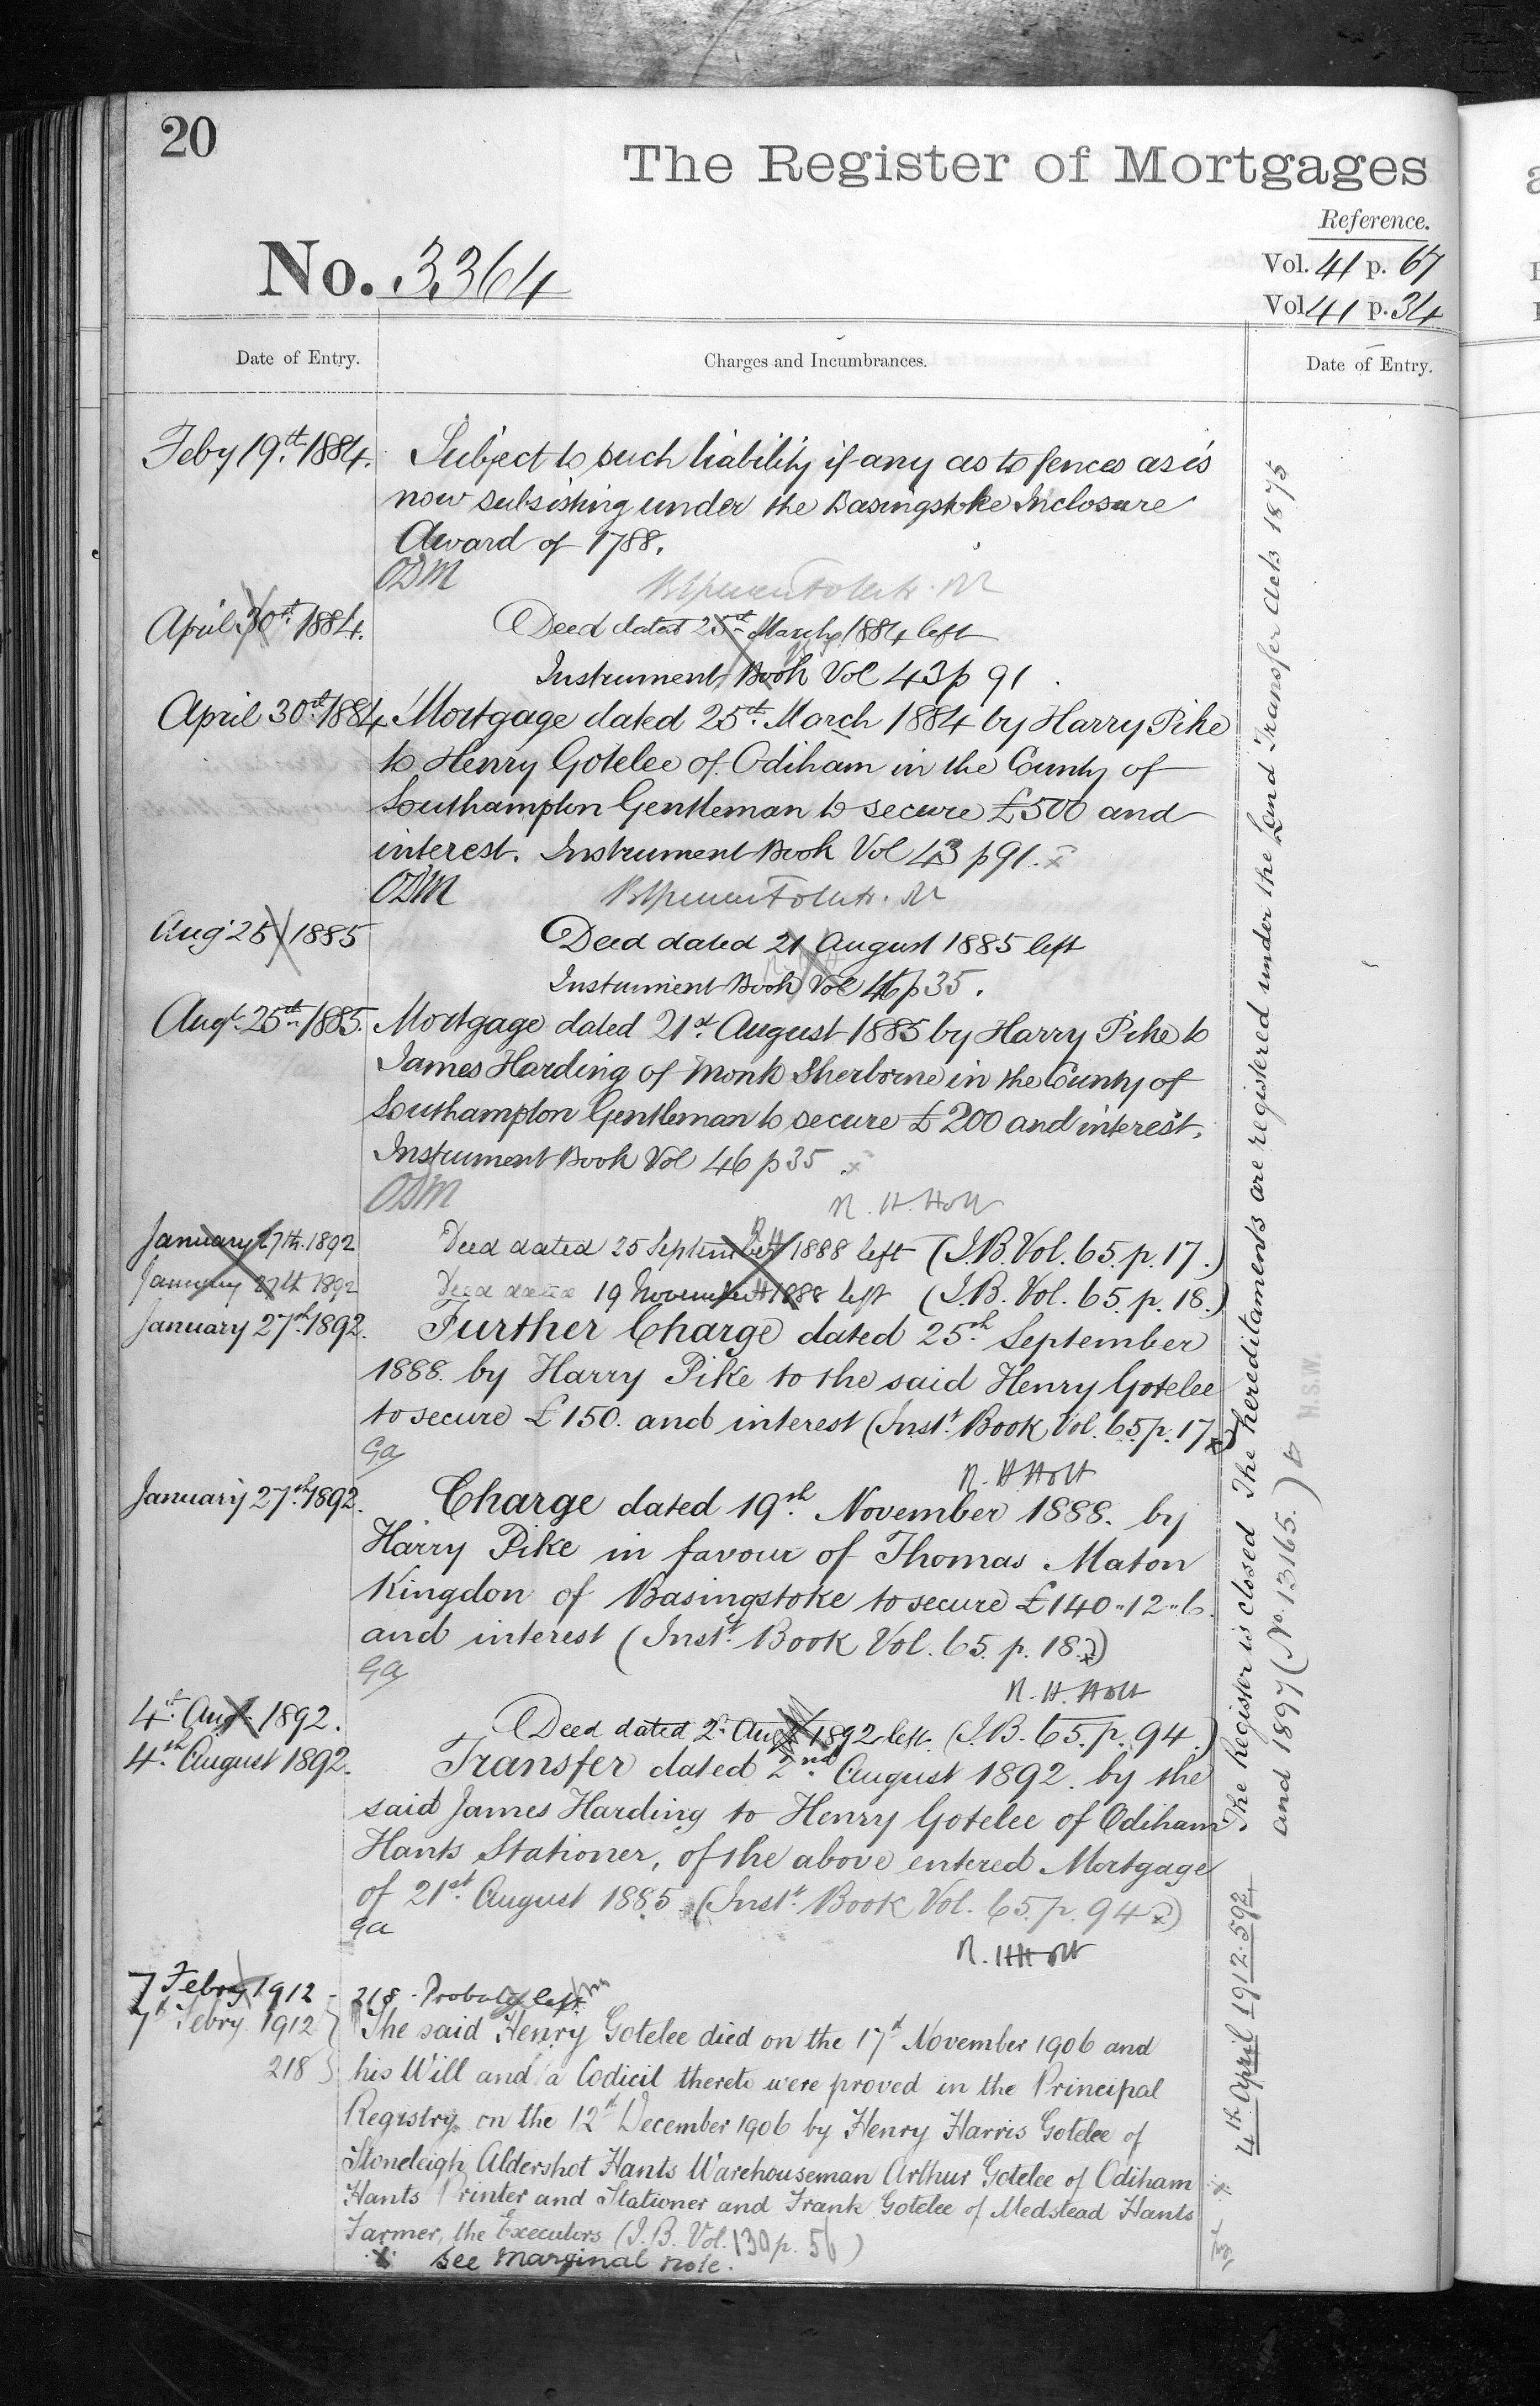 20
The Register of Mortgages
Reference.
No. 3364
Vol. 41 p. 67
Vol 41 p. 34
Date of Entry.
Charges and Incumbrances.
Date of Entry.
Feby 19th 1884. Subject to such liability if any as to fences as is
now subsisting under the Basingstoke Inclosure
Award of 1788.
ODM
April 30th 1884. Deed dated 25th March 1884 left
Instrument Book Vol 43 p 91
April 30th 1884 Mortgage dated 25th March 1884 by Harry Pike
to Henry Gotelee of Odiham in the County of
Southampton Gentleman to secure £500 and
interest. Instrument Book Vol 43 p 91. x
ODM
Aug 25 1885 Deed dated 21 August 1885 left
Instrument Book Vol 46 p 35.
Augt 25th 1885. Mortgage dated 21st August 1885 by Harry Pike to
James Harding of Monk Sherborne in the County of
Southampton Gentleman to secure £200 and interest.
Instrument Book Vol 46 p 35 x
ODM
R. H. Holt
January 27th. 1892 Deed dated 25 September 1888 left (I.B. Vol. 65. p. 17.)
January 27th 1892 Deed dated 19 November 1888 left (I.B. Vol. 65. p. 18.)
January 27th 1892. Further Charge dated 25th September
1888. by Harry Pike to the said Henry Gotelee
to secure £150. and interest (Inst. Book Vol. 65. p. 17 x)
Ga
R. H Holt
January 27th 1892. Charge dated 19th November 1888. by
Harry Pike in favour of Thomas Maton
Kingdon of Basingstoke to secure £140"12"6.
and interest (Inst. Book Vol. 65. p. 18. x)
Ga
R. H. Holt
4th Aug. 1892. Deed dated 2d Aug 1892 left. (I.B. 65. p. 94.)
4th August 1892. Transfer dated 2nd August 1892. by the
said James Harding to Henry Gotelee of Odiham
Hants Stationer, of the above entered Mortgage
of 21st August 1885. (Inst. Book Vol. 65. p. 94 x)
Ga
R. H Holt
7 Febry 1912 - 218 - Probate left
7th Febry 1912 The said Henry Gotelee died on the 17th November 1906 and
218 his Will and a Codicil thereto were proved in the Principal
Registry on the 12th December 1906 by Henry Harris Gotelee of
Stoneleigh Aldershot Hants Warehouseman Arthur Gotelee of Odiham
Hants Printer and Stationer and Frank Gotelee of Medstead Hants
Farmer, the Executors (I.B. Vol. 130 p. 56)
x see marginal note.
4th April 1912. 592 The Register is closed The hereditaments are registered under the Land Transfer Acts 1875
and 1897 (No. 13165.)
H.S.W.